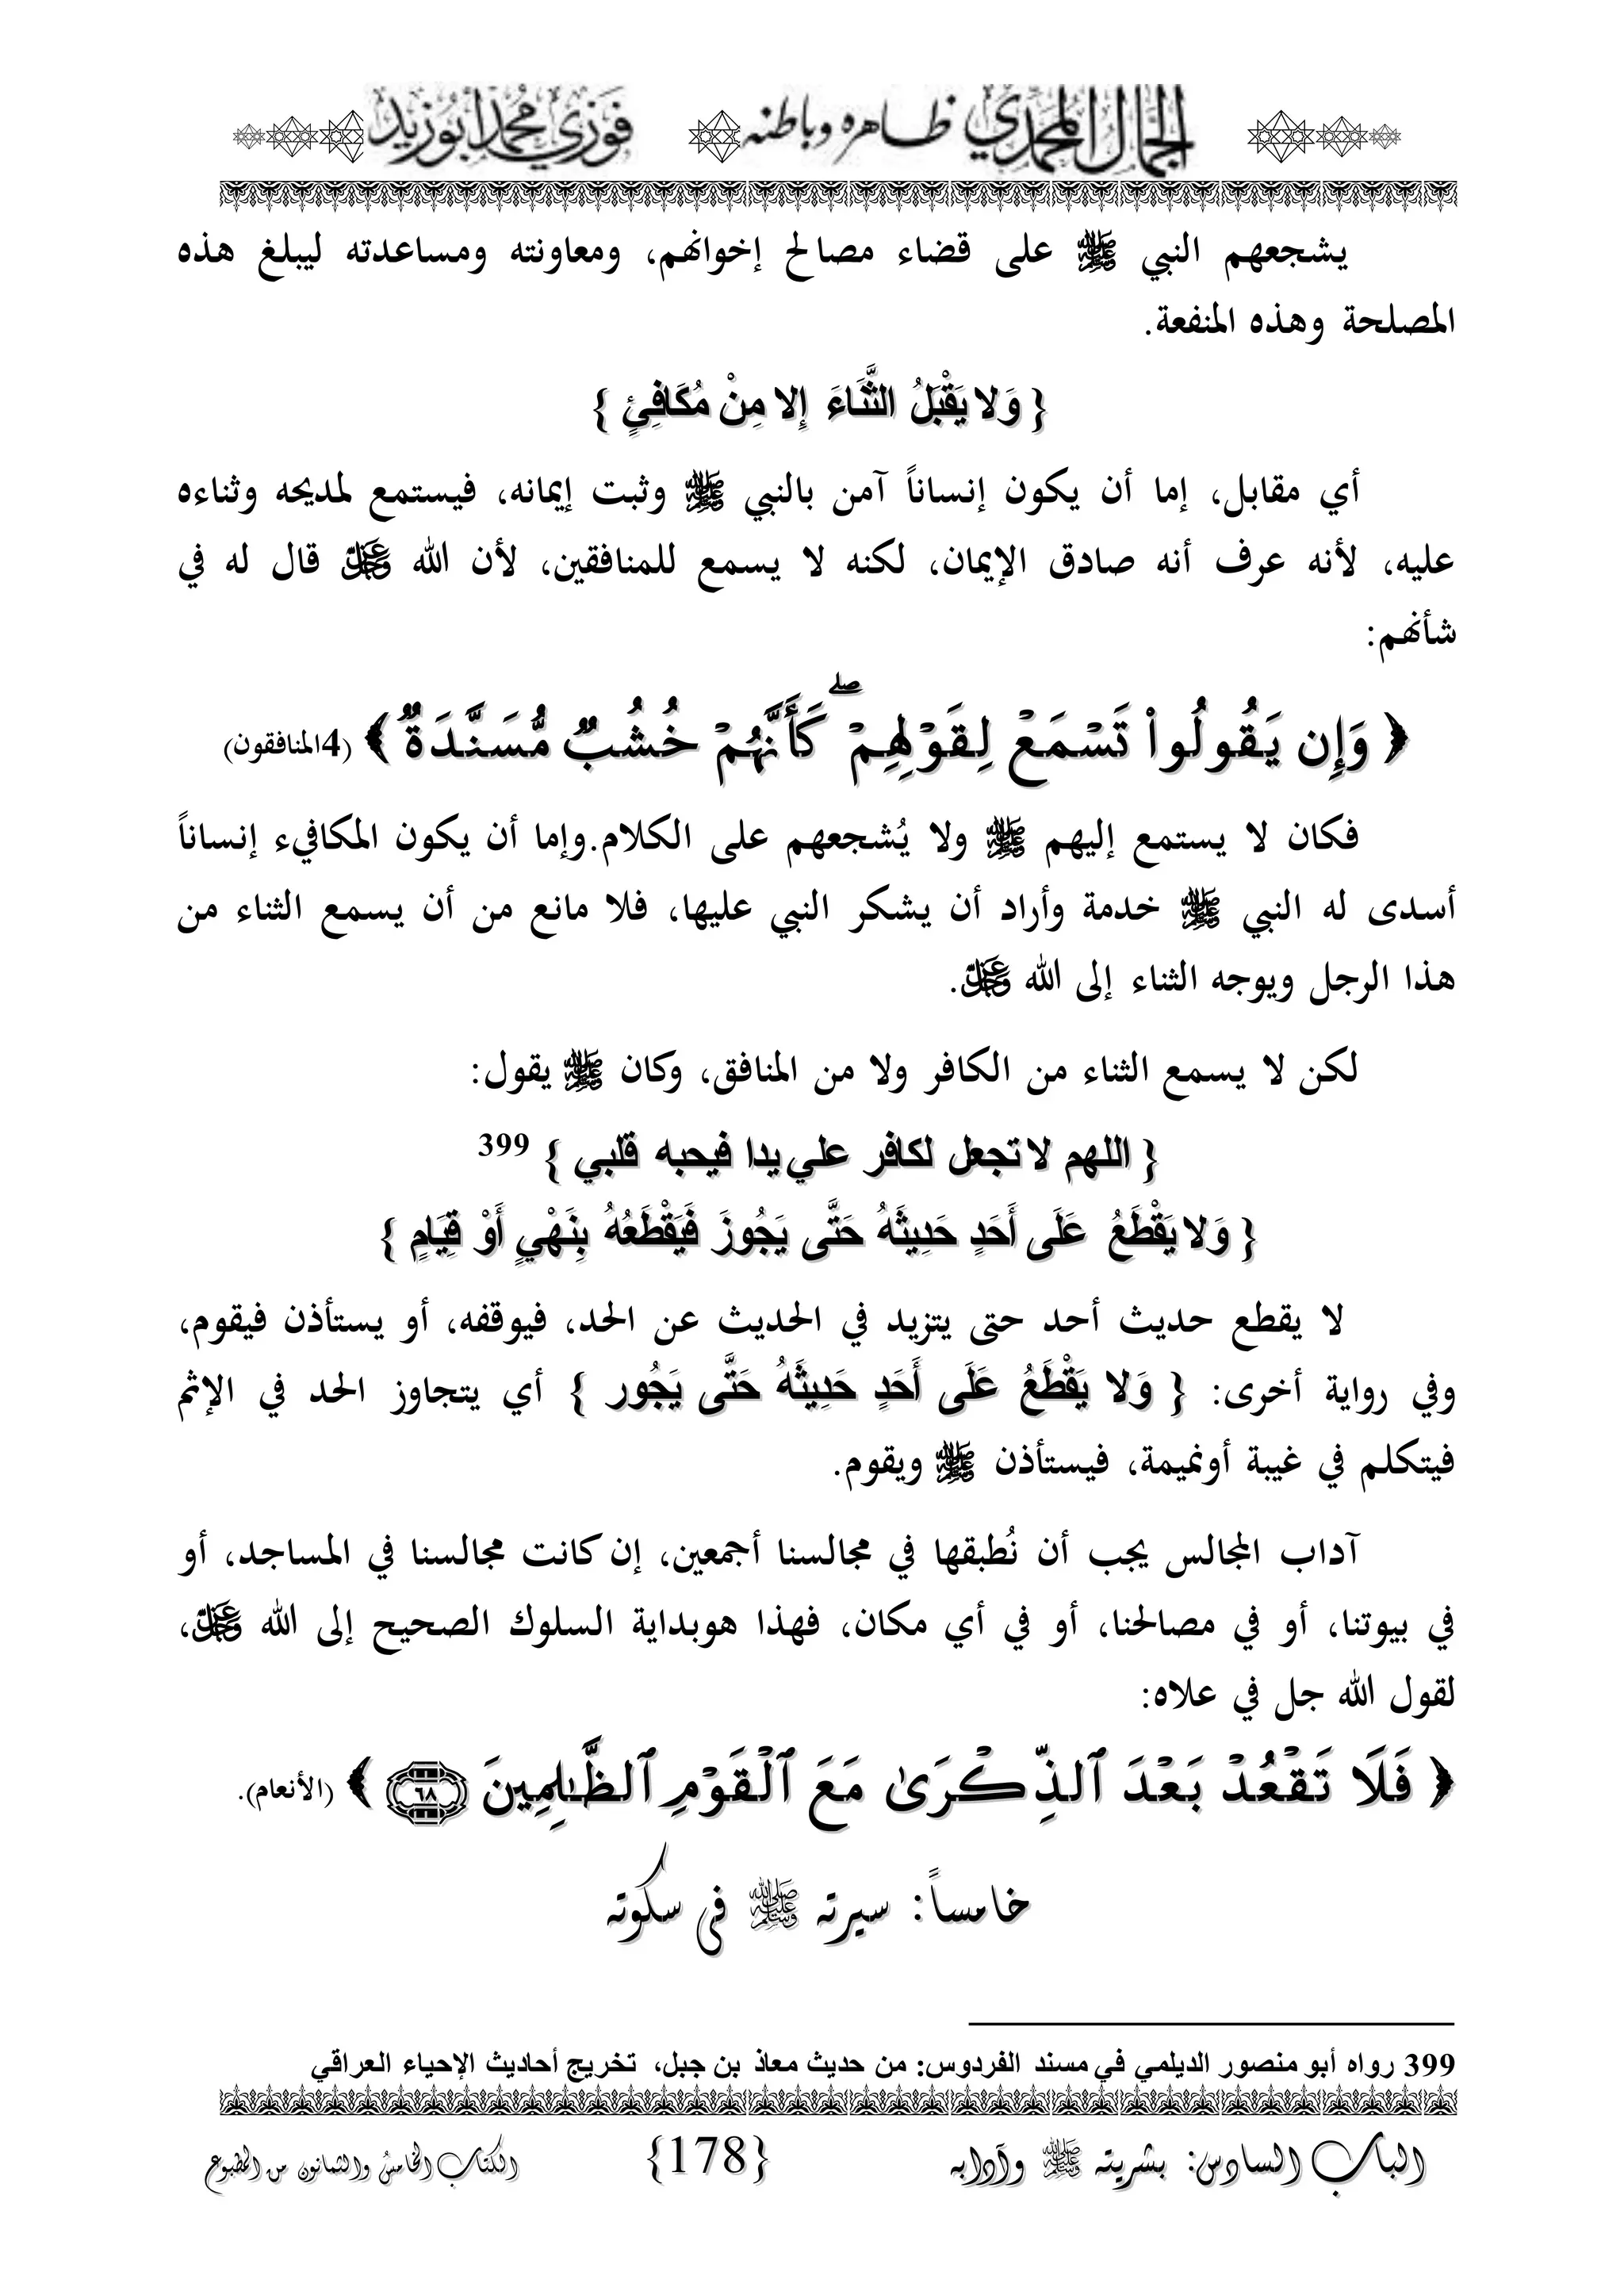 الجمال المحمدي ظاهره وباطنه فوزي محمد أبوزيد
يشجعهم النبي ﷺ على قضاء مصالح إخوانهم، ومعاونته ومساعدته ليبلغ هذه
المصلحة وهذه المنفعة.
{ وَلا يَقْبَلُ الثَّنَاءَ إِلا مِنْ مُكَافِئٍ }
أي مقابل، إما أن يكون إنساناً آمن بالنبي ﷺ وثبت إيمانه، فيستمع لمديحه وثناءه
عليه، لأنه عرف أنه صادق الإيمان، لكنه لا يسمع للمنافقين، لأن الله عز وجل قال له في
شأنهم:
﴿ وَإِن يَقُولُوا۟ تَسْمَعْ لِقَوْلِهِمْ ۖ كَأَنَّهُمْ خُشُبٌ مُّسَنَّدَةٌ ﴾ (4المنافقون)
فكان لا يستمع إليهم ﷺ ولا يُشجعهم على الكلام.وإما أن يكون المكافيء إنساناً
أسدى له النبي ﷺ خدمة وأراد أن يشكر النبي عليها، فلا مانع من أن يسمع الثناء من
هذا الرجل ويوجه الثناء إلى الله عز وجل.
لكن لا يسمع الثناء من الكافر ولا من المنافق، وكان ﷺ يقول:
{ اللهم لا تجعل لكافر علي يدا فيحبه قلبي } 399
{ وَلا يَقْطَعُ عَلَى أَحَدٍ حَدِيثَهُ حَتَّى يَجُوزَ فَيَقْطَعُهُ بِنَهْيٍ أَوْ قِيَامٍ }
لا يقطع حديث أحد حتى يتزيد في الحديث عن الحد، فيوقفه، أو يستأذن فيقوم،
وفي رواية أخرى: { وَلا يَقْطَعُ عَلَى أَحَدٍ حَدِيثَهُ حَتَّى يَجُور } أي يتجاوز الحد في الإثم
فيتكلم في غيبة أونميمة، فيستأذن ﷺ ويقوم.
آداب المجالس يجب أن نُطبقها في مجالسنا أجمعين، إن كانت مجالسنا في المساجد، أو
في بيوتنا، أو في مصالحنا، أو في أي مكان، فهذا هوبداية السلوك الصحيح إلى الله عز وجل،
لقول الله جل في علاه:
﴿ فَلَا تَقْعُدْ بَعْدَ ٱلذِّكْرَىٰ مَعَ ٱلْقَوْمِ ٱلظَّـٰلِمِينَ ٦٨ ﴾ (الأنعام).
خامساً: سيرته ﷺ فى سكوته
399 رواه أبو منصور الديلمي في مسند الفردوس: من حديث معاذ بن جبل، تخريج أحاديث الإحياء العراقي
الباب السادس: بشريته ﷺ وآدابه {178} الكتاب الخامس والثمانون من المطبوع